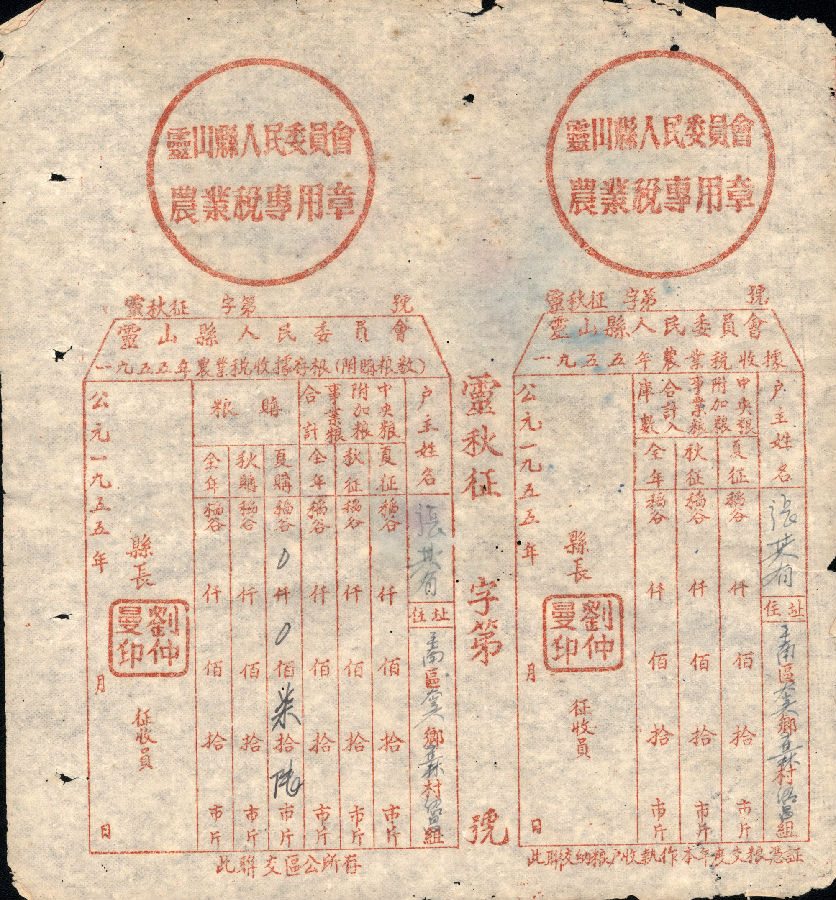 靈山縣人民委員會
農業稅專用章
靈秋征 字第 號
靈山縣人民委員會
一九五五年農業稅收據
户主姓名
張其有
住址
區 鄉 村 組
中央粮
附加粮
事業粮
合計入
庫數
夏征 稲谷 仟 佰 拾 市斤
秋征 稲谷 仟 佰 拾 市斤
全年 稲谷 仟 佰 拾 市斤
縣長
劉仲
曼印
征收員
公元一九五五年 月 日
此聯交納粮户收執作本年度交粮憑証
靈秋征 字第 號
靈山縣人民委員會
農業稅專用章
靈秋征 字第 號
靈山縣人民委員會
一九五五年農業稅收據存根(附購粮数)
户主姓名
張其有
住址
區 鄉 村 組
中央粮
附加粮
事業粮
合計
夏征 稲谷 仟 佰 拾 市斤
秋征 稲谷 仟 佰 拾 市斤
全年 稲谷 仟 佰 拾 市斤
購粮
夏購 稲谷 0 仟 0 佰 柒 拾 陆 市斤
秋購 稲谷 仟 佰 拾 市斤
全年 稲谷 仟 佰 拾 市斤
縣長
劉仲
曼印
征收員
公元一九五五年 月 日
此聯交區公所存